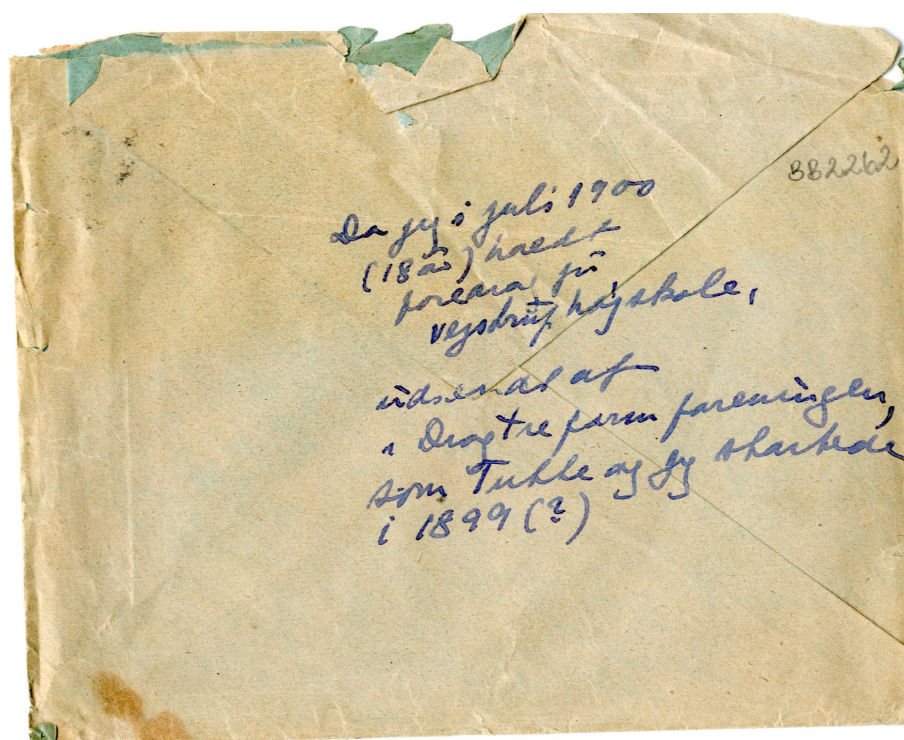 882262
Da jeg i juli 1900
(18 år) holdt
foredrag på
Vejstrup højskole,
udsendt af
"Dragtreformforeningen,
som Tuhhe og jeg startede
i 1899 (?)